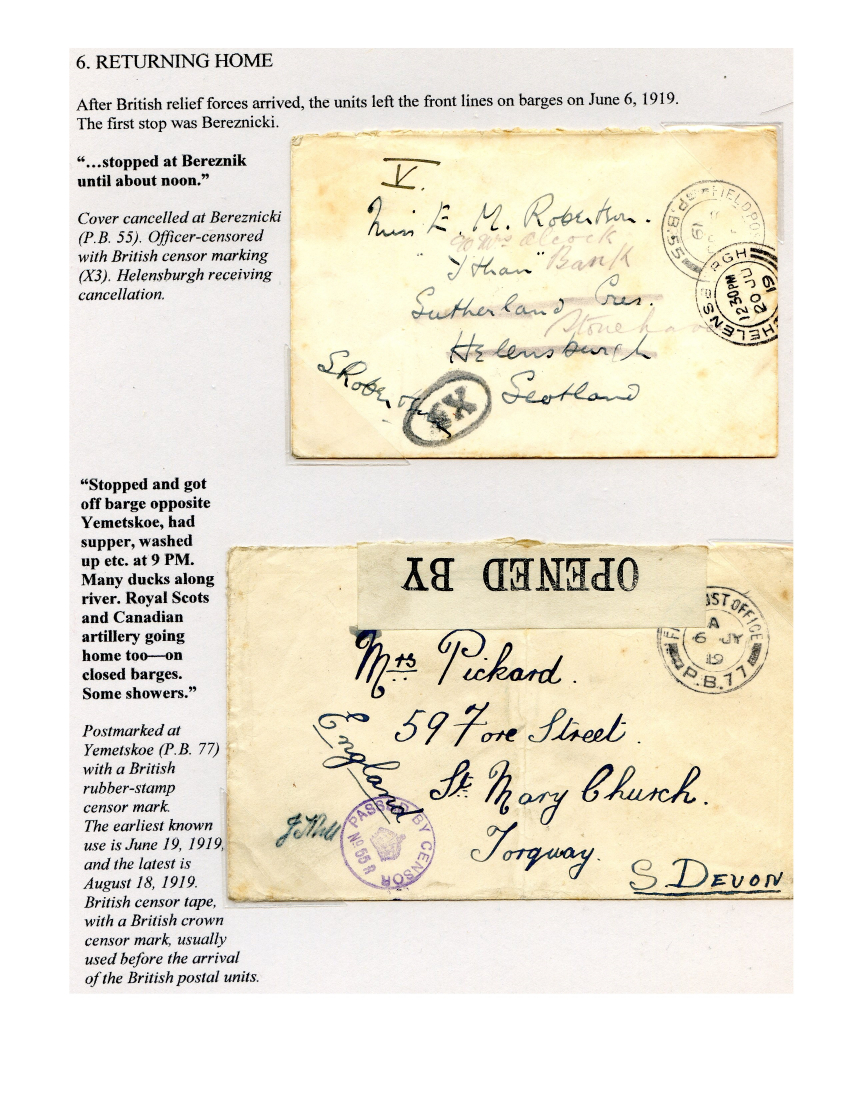 6. RETURNING HOME
After British relief forces arrived, the units left the front lines on barges on June 6, 1919.
The first stop was Bereznicki.
“…stopped at Bereznik
until about noon.”
Cover cancelled at Bereznicki
(P.B. 55). Officer-censored
with British censor marking
(X3). Helensburgh receiving
cancellation.
V.
Miss E. M. Robertson.
"Ithan" Bank
Sutherland Cres.
Helensburgh
Scotland
S Robertson
X3
FIELD PO
P.B.55
19
HELENSBURGH
12 30PM
20 JU
19
“Stopped and got
off barge opposite
Yemetskoe, had
supper, washed
up etc. at 9 PM.
Many ducks along
river. Royal Scots
and Canadian
artillery going
home too—on
closed barges.
Some showers.”
Postmarked at
Yemetskoe (P.B. 77)
with a British
rubber-stamp
censor mark.
The earliest known
use is June 19, 1919,
and the latest is
August 18, 1919.
British censor tape,
with a British crown
censor mark, usually
used before the arrival
of the British postal units.
OPENED BY
OST OFFICE
A
6 JY
19
P.B.77
Mrs Pickard.
59 Fore Street.
St. Mary Church.
Torquay.
S. DEVON
England
PASSED BY CENSOR